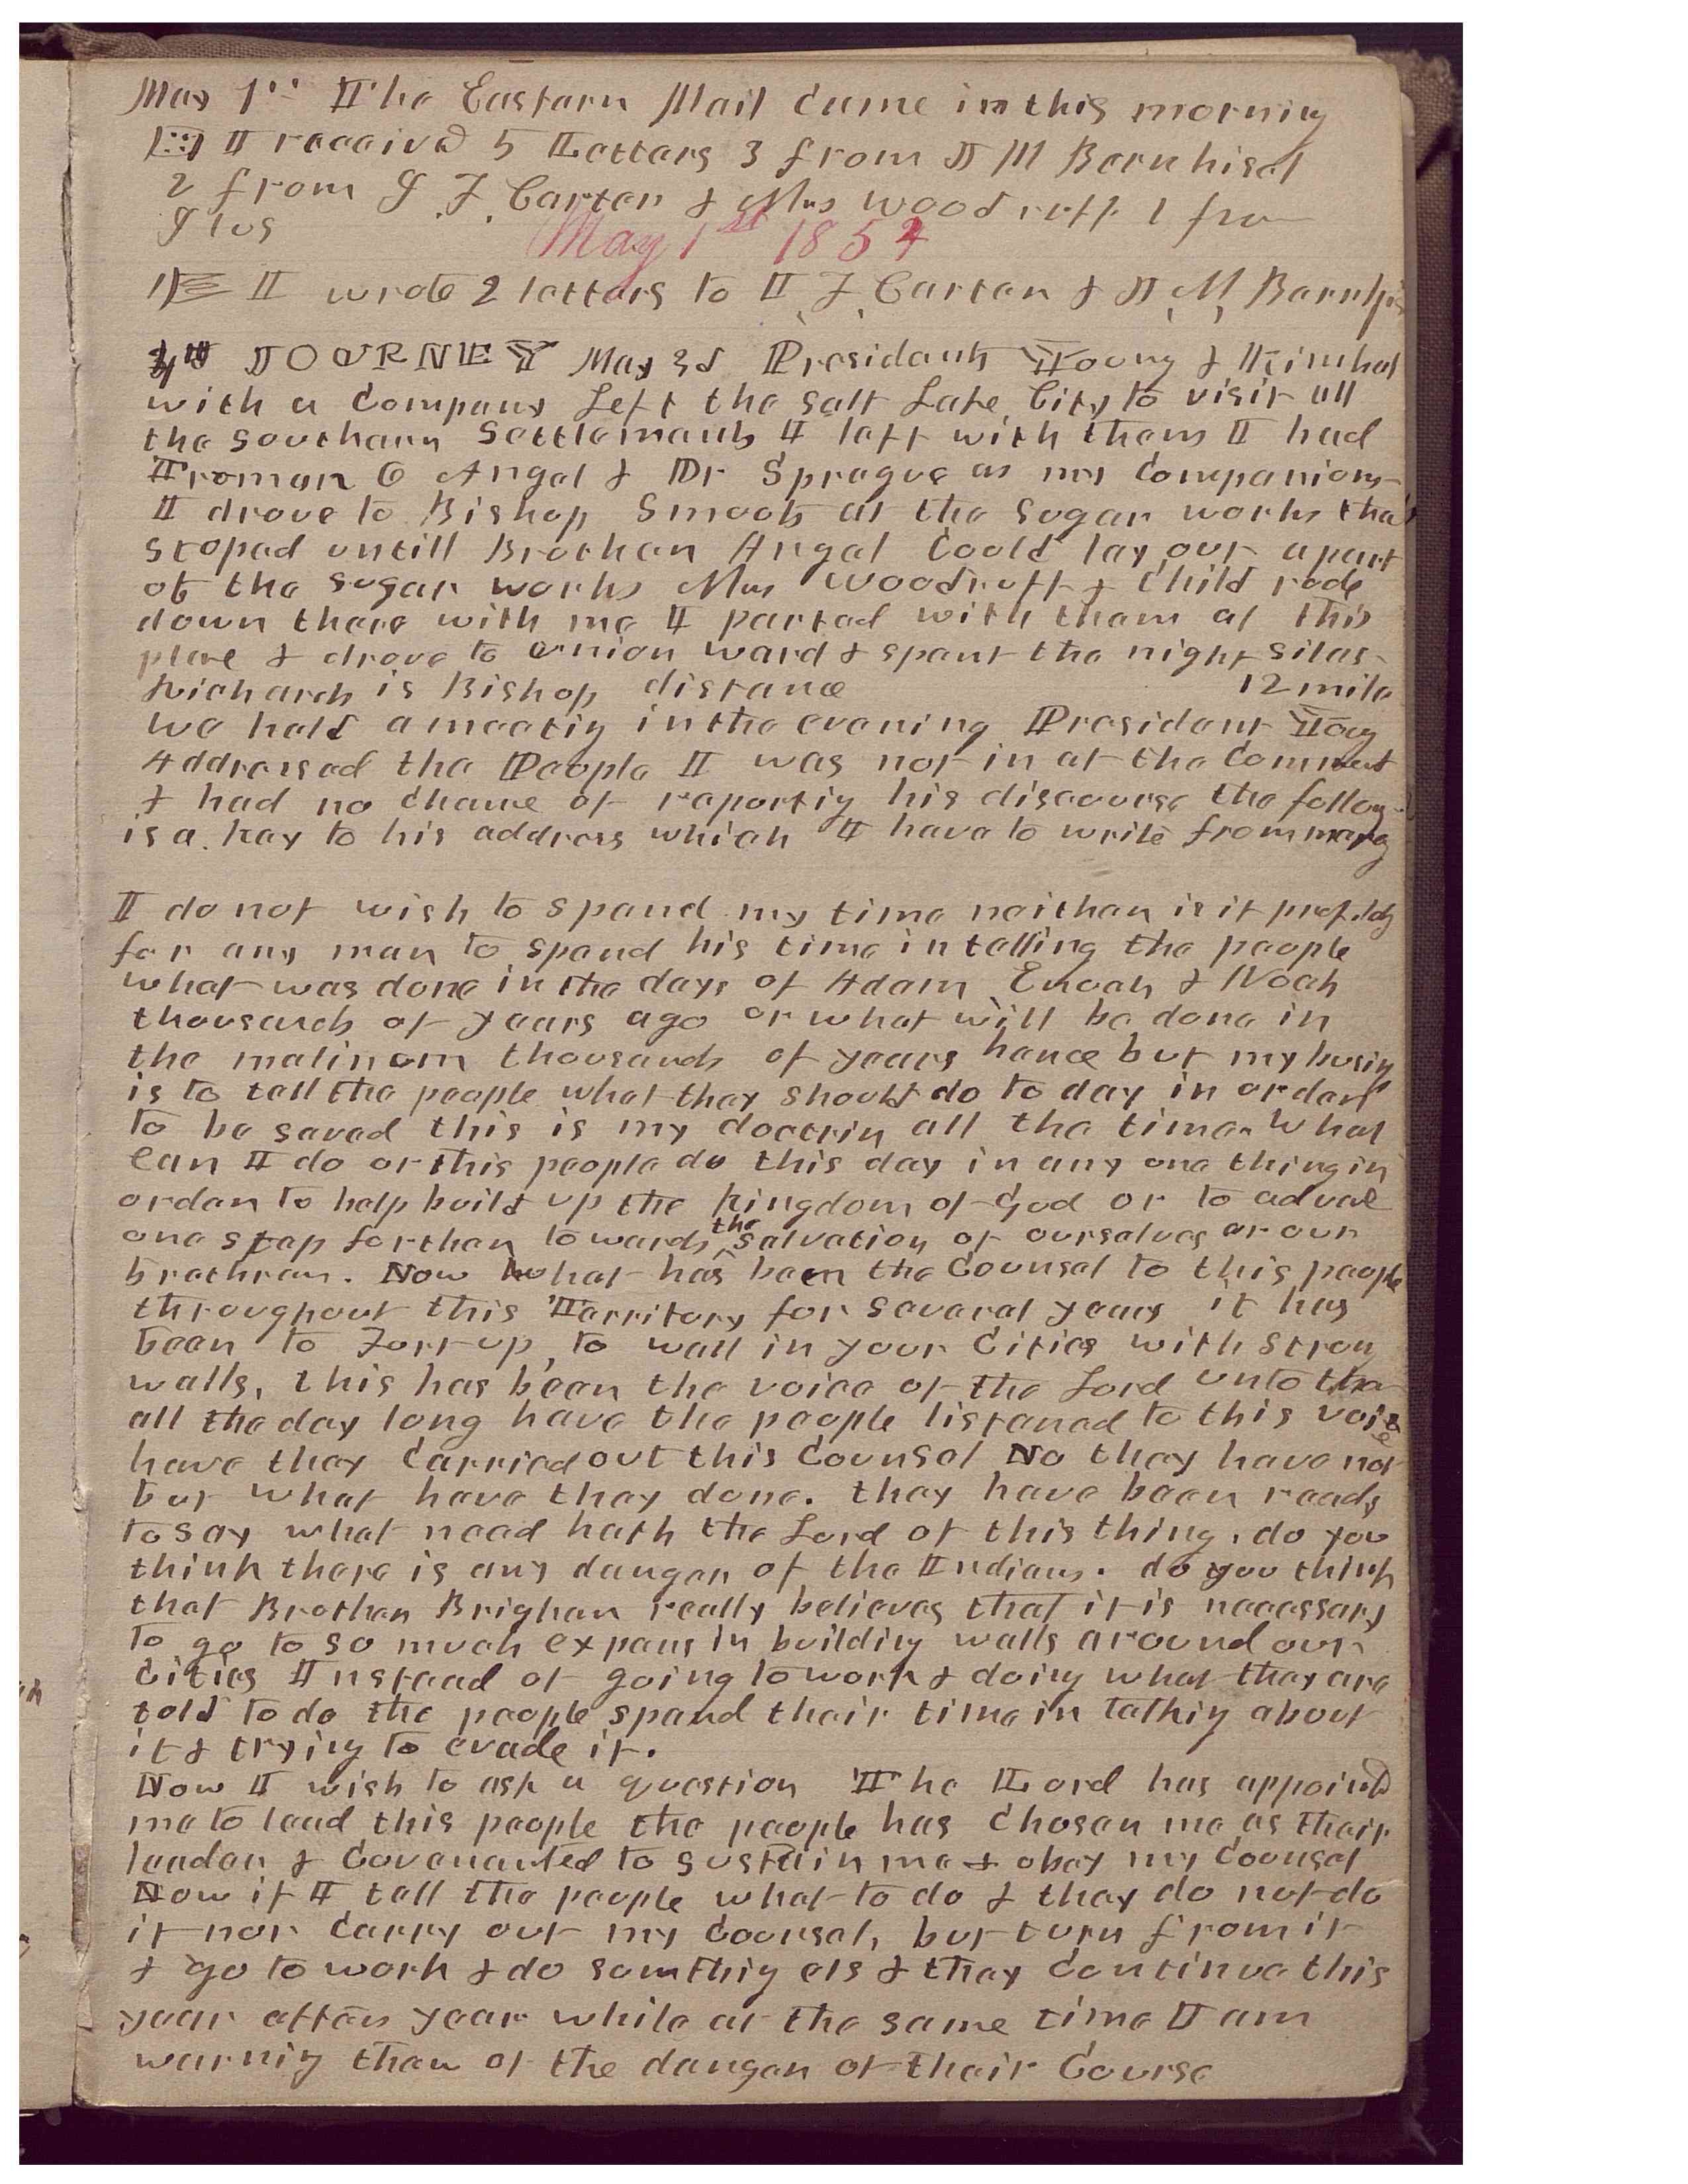 May 1st The Eastern Mail Came in this morning
I received 5 Letters 3 from J M Bernhisel
2 from I. F. Carter & Mrs Woodruff 1 from
May 1st 1854
I wrote 2 letters to I, F, Carter & J, M, Bernhis
JOURNEY May 3d President Young & Kimbal
with a Company Left the Salt Lake City to visit all
the Southern Settlements I left with them I had
Truman O Angel & Dr Sprague as my Companions
I drove to Bishop Smoots at the Sugar works tha
stoped untill Brother Angel Could lay out a part
of the sugar works Mrs Woodruff & Child rode
down there with me I parted with them at this
place & drove to Union ward & spent the night Silas
Richards is Bishop distance 12 mile
we held a meetig in the evening President Youg
Addressed the People I was not in at the Comment
& had no Chance of reportig his discourse the follow
is a key to his address which I have to write from
I do not wish to spend my time neither is it
for any man to spend his time in telling the people
what was done in the days of Adam Enoch & Noah
thousands of years ago or what will be done in
the malinum thousands of years hence but my busin
is to tell the people what they should do to day in order
to be saved this is my doctrin all the time. What
Can I do or this people do this day in any one thing in
order to help build up the kingdom of God or to advance
one step forther towards the salvation of ourselves or our
brethren. Now what has been the Counsel to this people
throughout this Territory for Several years it has
been to Fort up, to wall in your Cities with strong
walls, this has been the voice of the Lord unto the
all the day long have the people listened to this voice
have they Carried out this Counsel No they have not
but what have they done. they have been ready
to say what need hath the Lord of this thing, do you
think there is any danger of the Indians. do you think
that Brother Brigham really believes that it is necessary
to go to so much expens in buildig walls around our
Cities Instead of going to work & doing what they are
told to do the people spend their time in talkig about
it & trying to evade it.
Now I wish to ask a question The Lord has appointed
me to lead this people the people has Chosen me as their
leader & Covenanted to sustain me & obey my Counsel
Now if I tell the people what to do & they do not do
it nor Carry out my Counsel, but turn from it
& go to work & do somthig els & they Continue this
year after year while at the same time I am
warnig them of the danger of their Course